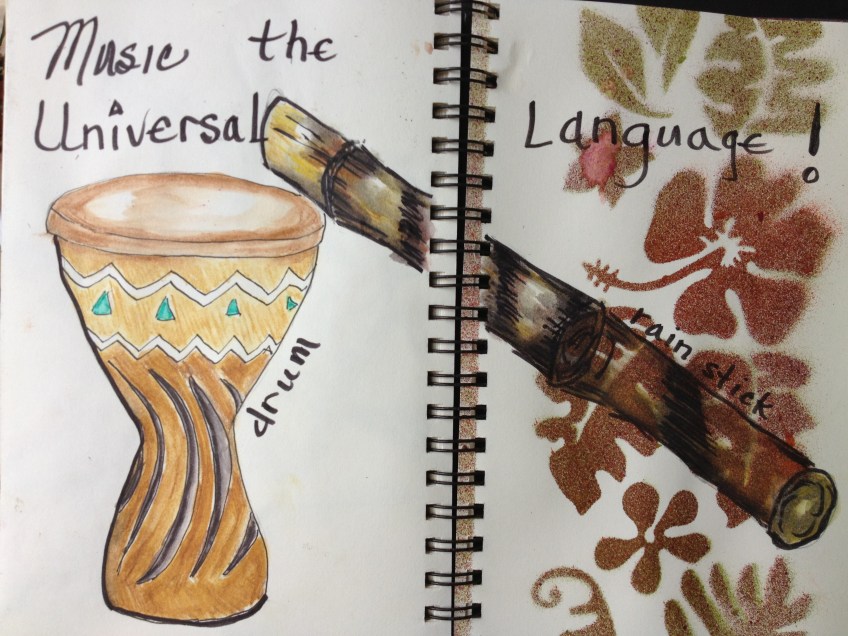 Music the
Universal
Language!
drum
rain stick